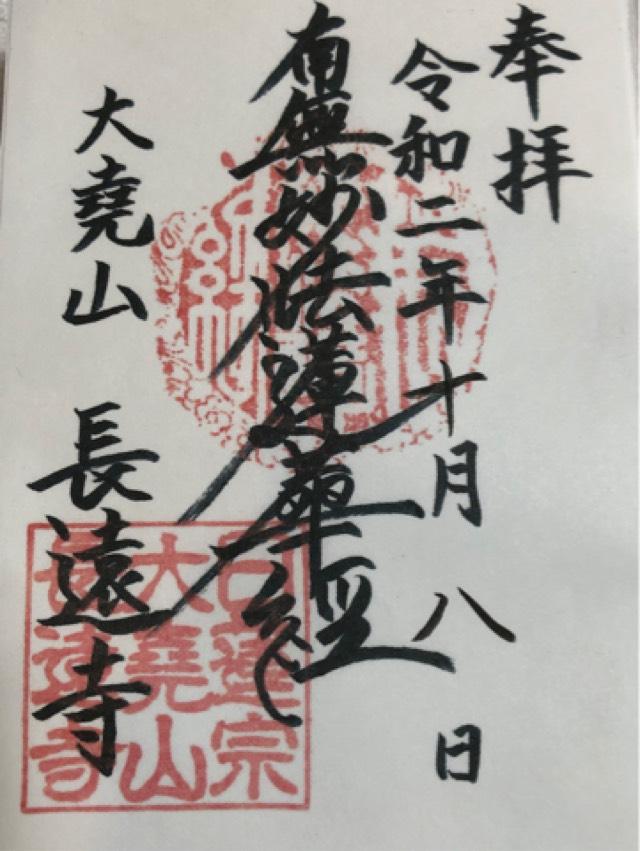 奉拝
令和二年十月八日
南無妙法蓮華經
大堯山 長遠寺
日蓮宗
大堯山
長遠寺